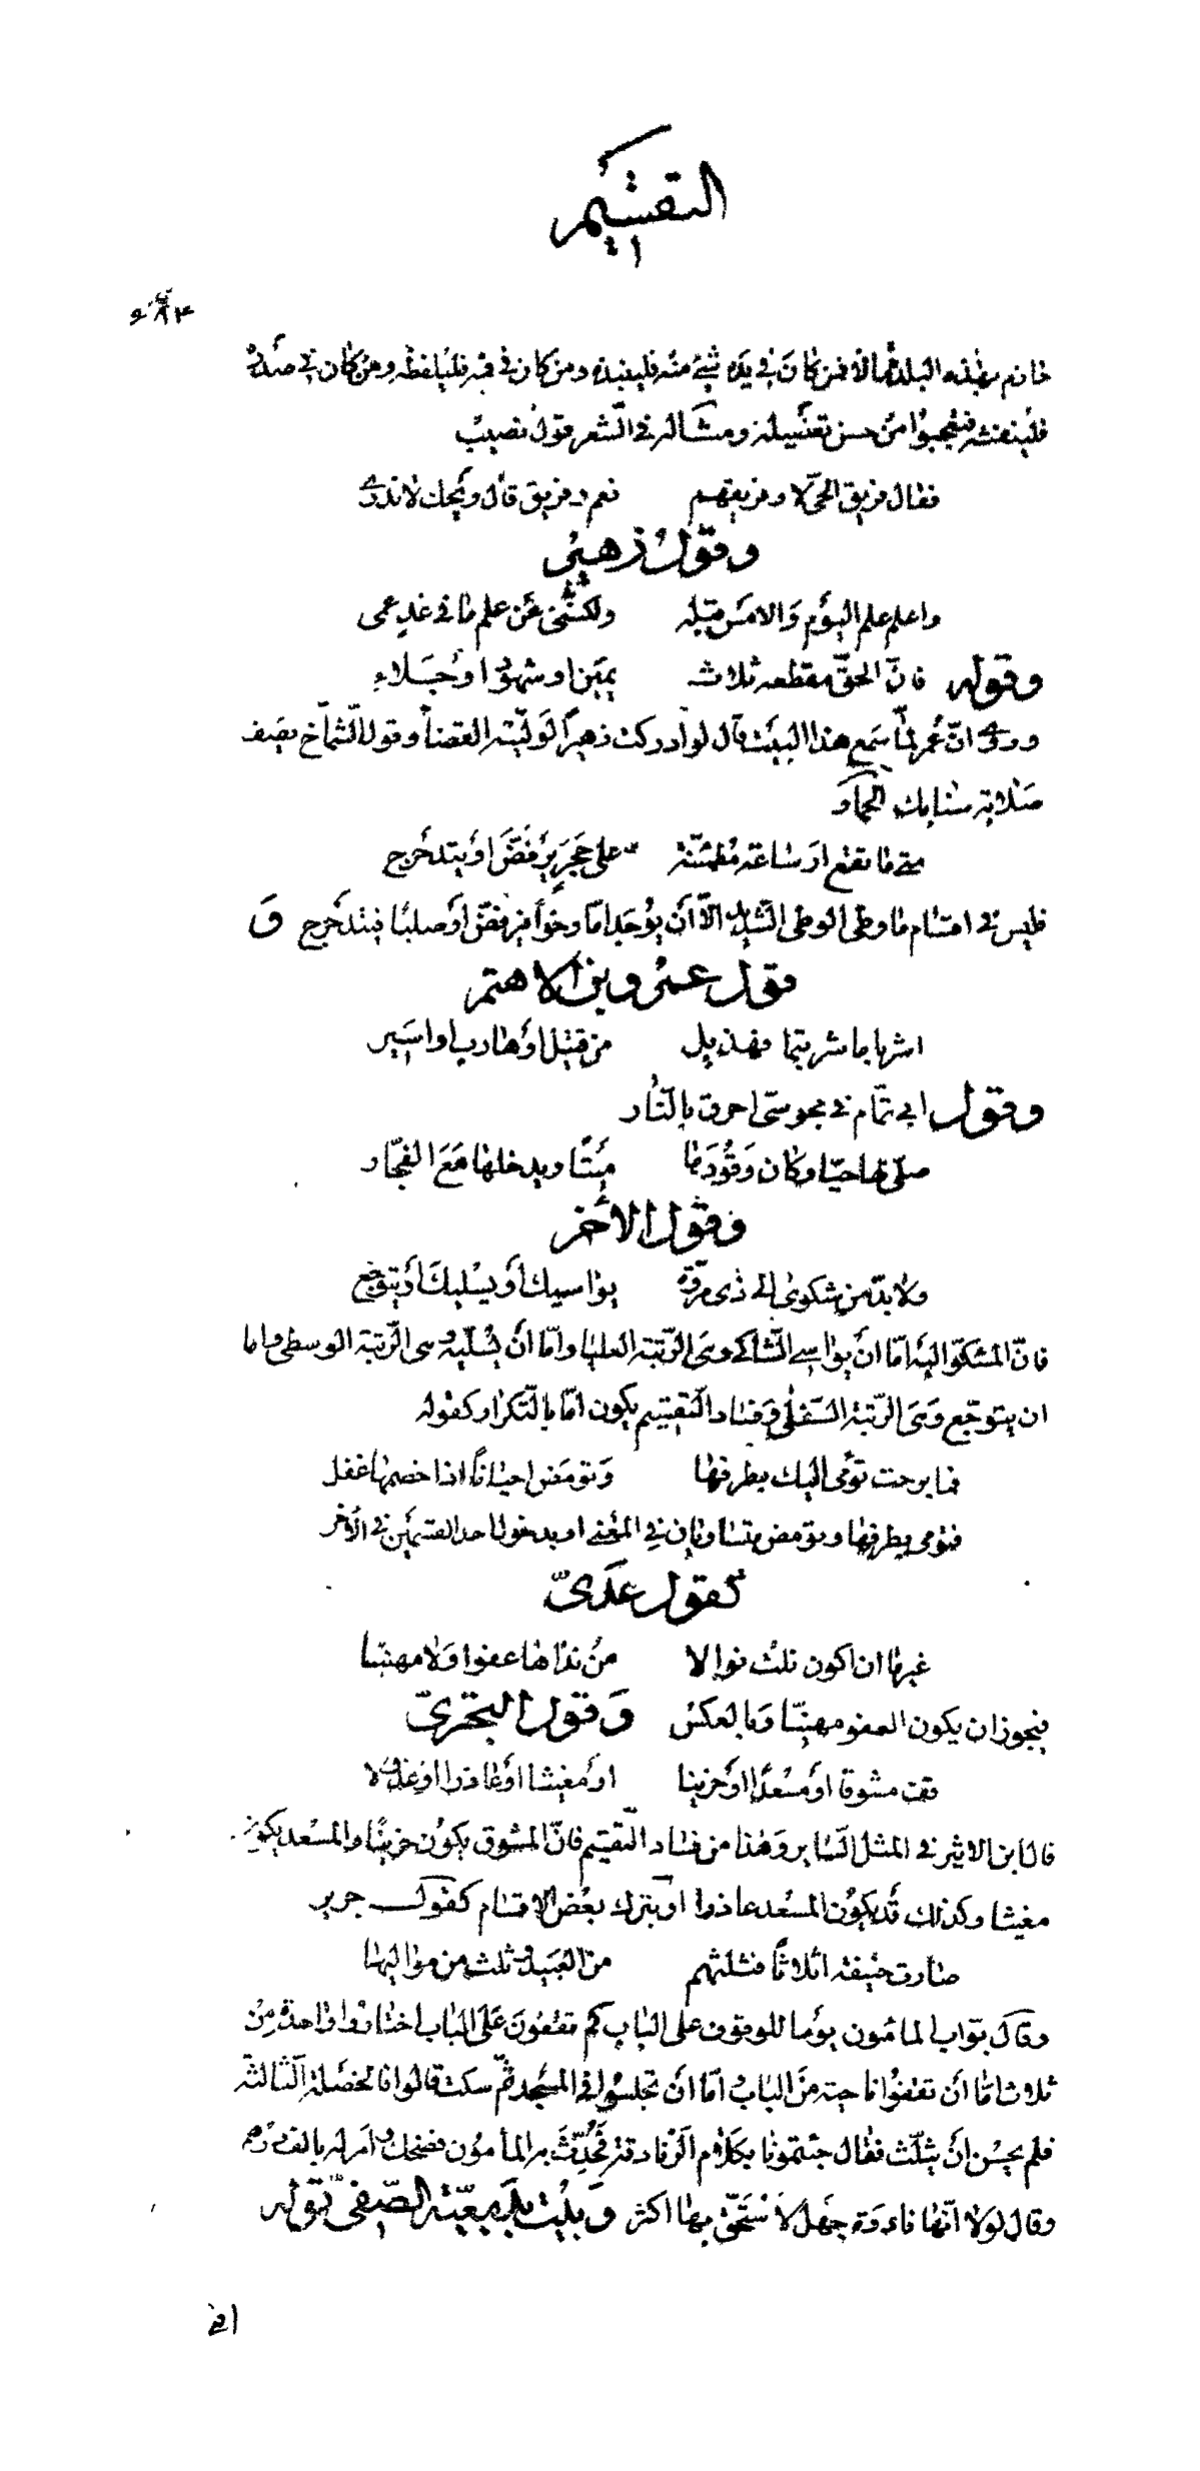 التقسيم
خازم بهذه البلدة مالا فمن كان في يده شيئ منه فلينبذه ومن كان في فيه فليلفظه ومن كان في صدره
فلينفثه فتعجبوا من حسن تفصيله ومثاله في الشعر قول نصيب
فقال فريق الحي لا وفريقهم نعم وفريق قال ويحك لا ندري
وقول زهير
واعلم علم اليوم والامس قبله ولكنني عن علم ما في غد عمى
وقوله فانّ الحقّ مقطعه ثلاث يمين او شهود او جلاء
وروى انّ عمر لمّا سمع هذا البيت قال لو ادركت زهيرا لوليته القضا وقول الشماخ يصف
صلابة سنابك الحمار
متى ما تقع ارساغه مطمئنّة على حجر يرفضّ او يتدحرج
فليس في اقسام ما وطى الوطى الشديد الّا أن يوجد امّا رخوا فيرفضّ أو صلبا فيتدحرج و
قول عمرو بن الاهتم
اشربا ما شربتما فهذيل من قتيل أو هارب او اسير
وقول ابي تمّام في مجوسيّ احرق بالنّار
صلّى لها حيّا وكان وقودها ميّتا ويدخلها مع الفجّار
وقول الأخر
ولا بدّ من شكوى الى ذى مروّة يواسيك أو يسليك أو يتوجّع
فانّ المشكوّ اليه امّا أن يواسي الشّاكي وهى الرّتبة العليا وامّا أن يسلّيه وهى الرّتبة الوسطى واما
ان يتوجّع وهى الرّتبة السّفلى وفساد التّقسيم يكون امّا بالتّكرار كقوله
فما برحت تؤمى اليك بطرفها وتومض احيانًا اذا خصمها غفل
فتؤمى بطرفها وتومض متساويان في المعنى او بدخول احد القسمين في الأخر
كقول عدىّ
غير ما ان اكون نلت نوالا من نداها عفوا ولا مهنيّا
فيجوز ان يكون العفو مهنيّا وبالعكس وقول البحتريّ
قف مشوقا أو مسعدًا أو حزينا او مغيثا او عاذرا او عذولا
قال ابن الاثير في المثل السّاير وهذا من فساد التّقسيم فانّ المشوق يكون حزينًا والمسعد يكون
مغيثا وكذلك قد يكون المسعد عاذرا او بترك بعض الاقسام كقول جرير
صارت حنيفة اثلاثًا فثلثهم من العبيد وثلث من مواليها
وقال بوّاب المامون يوما للوقوف على الباب كم تقفون على الباب اختاروا واحدة من
ثلاث امّا أن تقفوا ناحية من الباب وامّا أن تجلسوا في المسجد ثمّ سكت قالوا فالخصلة الثالثة
فلم يحسن أن يثلّث فقال جئتمونا بكلام الزنادقة فحدّث به المأمون فضحك وامر له بالف درهم
وقال لولا انّها نادرة جهل لاستحقّ بها اكثر وبيت بديعيّة الصّفيّ قوله